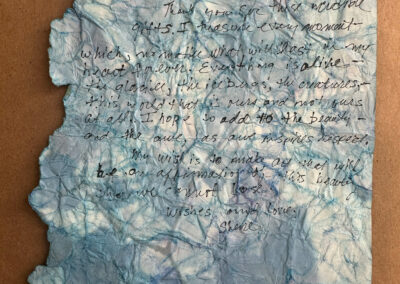 Thank you for these natural
gifts. I treasure every moment
which, no matter what, will last in my
heart forever. Everything is alive –
the glaciers, the icebergs, the creatures,
this world that is ours and not ours
at all. I hope to add to the beauty –
and the awe, as and inspires respect.
My wish is to make art that will
be an affirmation of this beauty
we cannot lose.
Wishes and love,